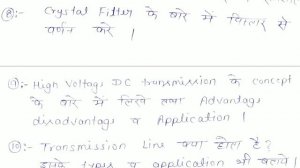 (8):- Crystal Filter के बारे में विस्तार से
वर्णन करे ।
(9):- High Voltage DC transmission के concept
के बारे में लिखे तथा Advantage,
disadvantage व Application ।
(10):- Transmission Line क्या होता है ?
इसके types व application भी बताये